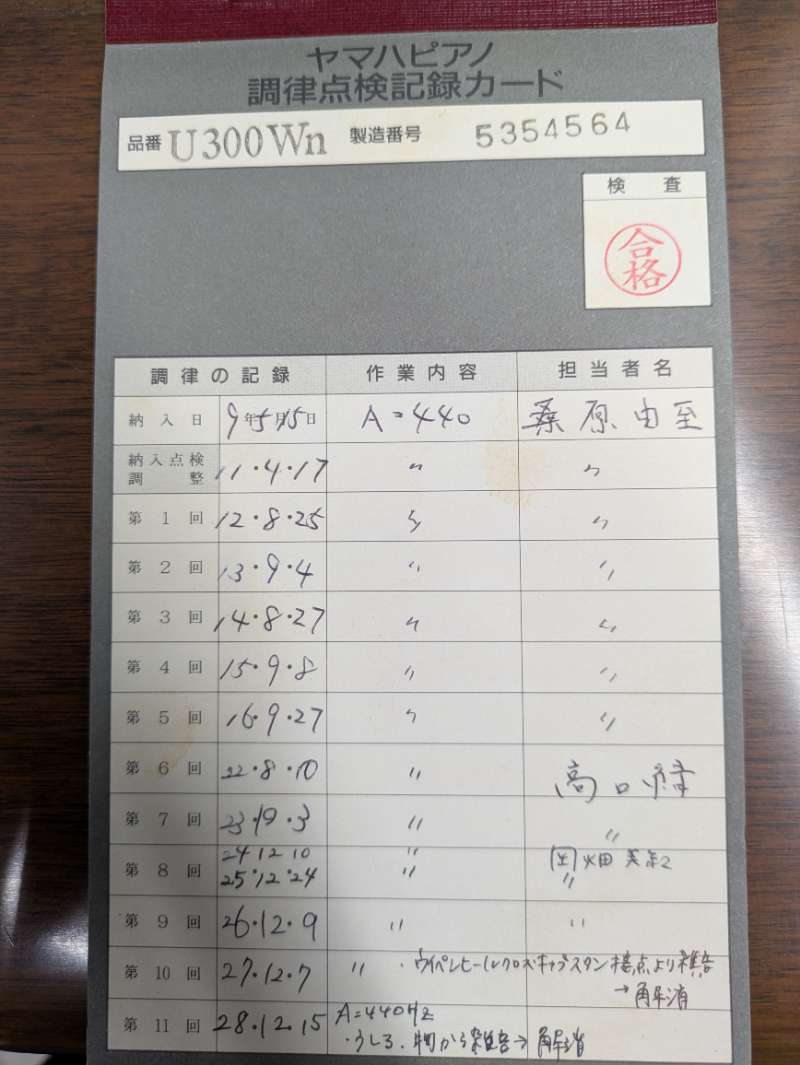 ヤマハピアノ
調律点検記録カード
品番 U300Wn 製造番号 5354564
検査
合格
調律の記録 作業内容 担当者名
納入日 9年5月15日 A=440 桑原由至
納入点検調整 11・4・17 〃 〃
第1回 12・8・25 〃 〃
第2回 13・9・4 〃 〃
第3回 14・8・27 〃 〃
第4回 15・9・8 〃 〃
第5回 16・9・27 〃 〃
第6回 22・8・10 〃 高口
第7回 23・9・3 〃 〃
第8回 24 12 10 〃 畑
25・12・24 〃 〃
第9回 26・12・9 〃 〃
第10回 27・12・7 〃 ・ウイペンヒールクロス・キャプスタン接点より雑音
→解消
第11回 28・12・15 A=440Hz
・うしろ、から雑音→解消